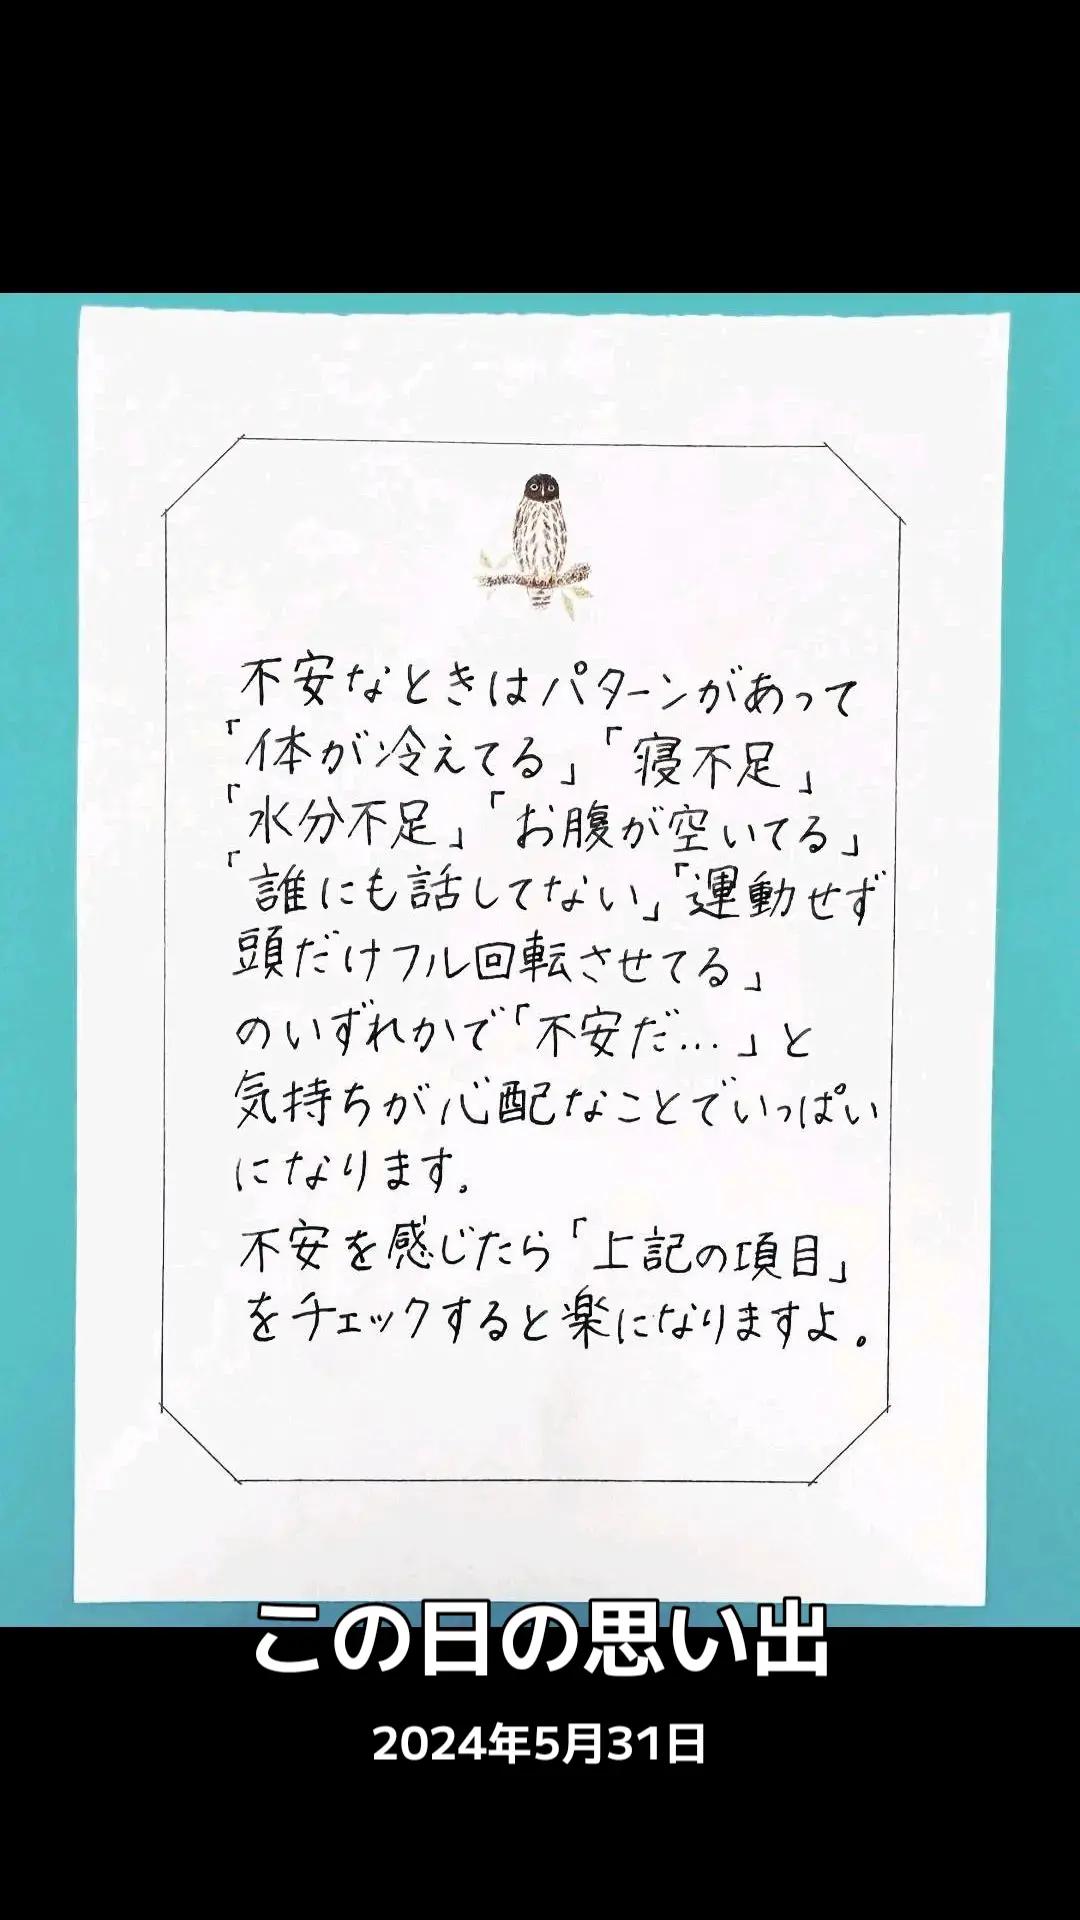 不安なときはパターンがあって
「体が冷えてる」「寝不足」
「水分不足」「お腹が空いてる」
「誰にも話してない」「運動せず
頭だけフル回転させてる」
のいずれかで「不安だ…」と
気持ちが心配なことでいっぱい
になります。
不安を感じたら「上記の項目」
をチェックすると楽になりますよ。
この日の思い出
2024年5月31日